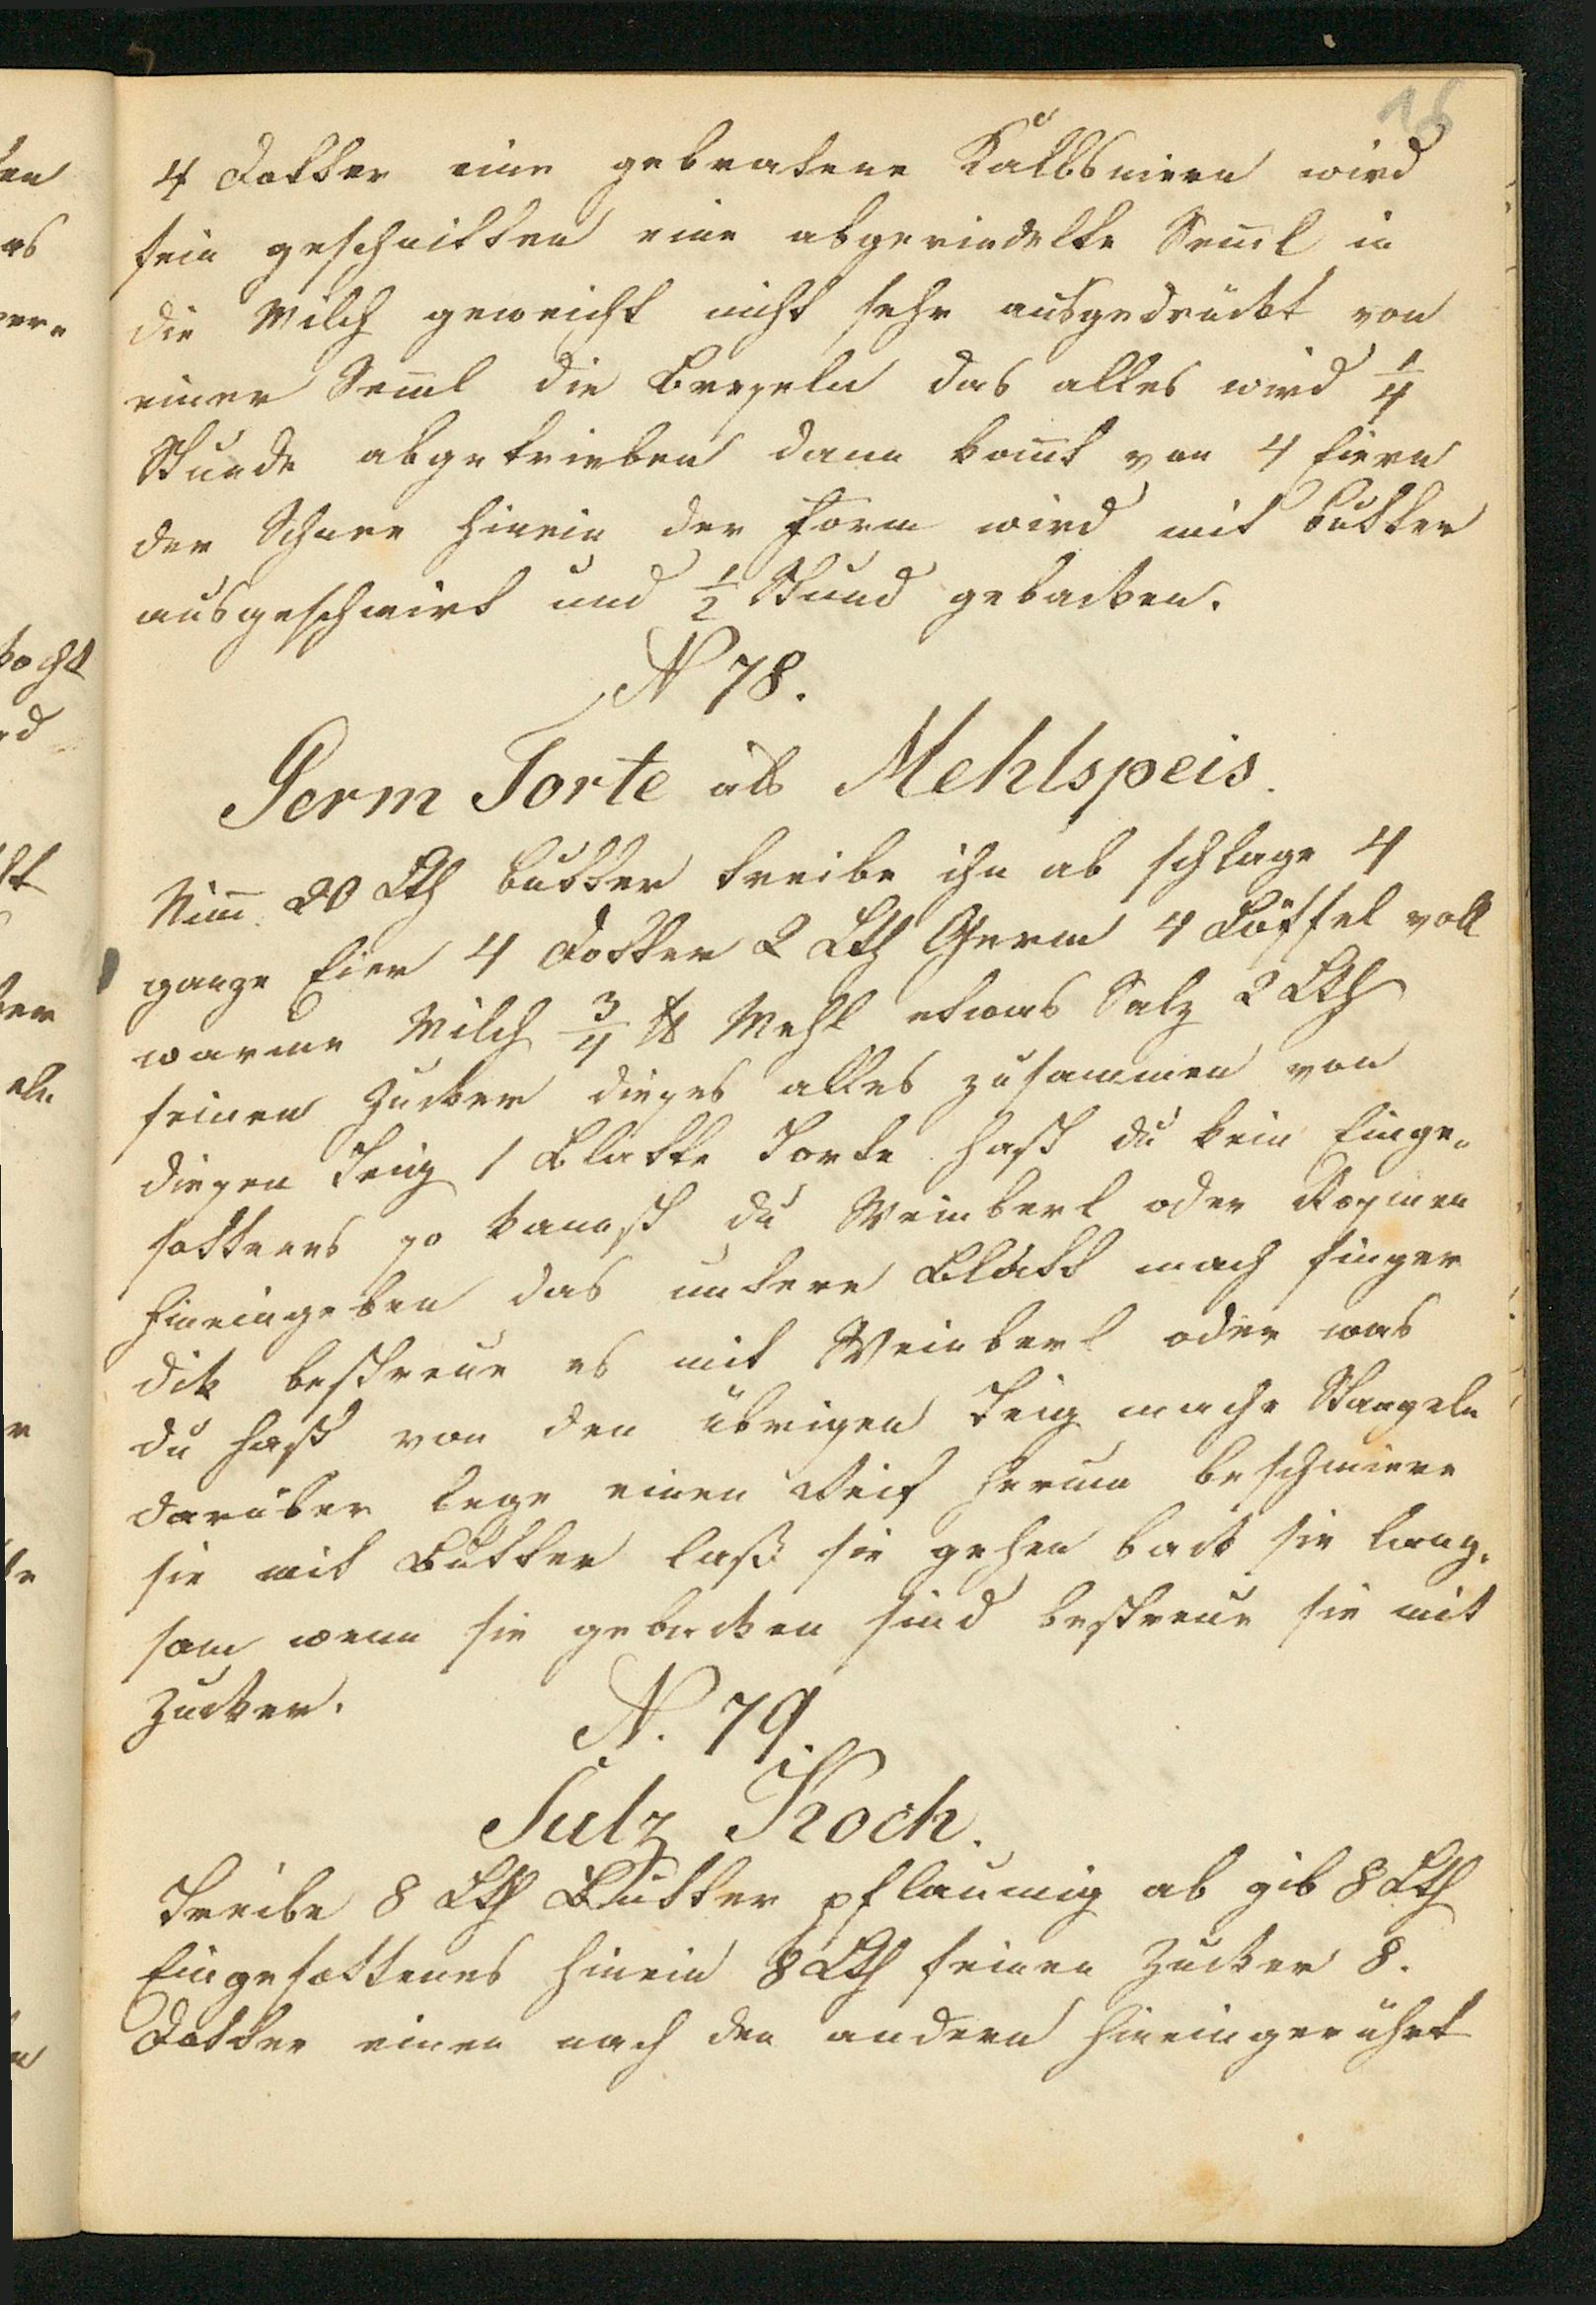 16
4 Dotter eine gebratene Kälbsnieren wird
fein geschnitten eine abgerindelte Sem̄l in
die Milch geweicht nicht sehr ausgedrückt von
einer Sem̄l die Breseln das alles wird 1/4
Stunde abgetrieben dann kom̄t von 4 Eiern
der Schnee hinein der Form wird mit Butter
ausgeschmirt und 1/2 Stund gebacken.
N 78.
Germ Torte als Mehlspeis.
Nim̄ 20 Lth Butter treibe ihn ab schlage 4
ganze Eier 4 Dotter 2 Lth Germ 4 Löffel voll
warme Milch 3/4 ℔ Mehl etwas Salz 2 Lth
feinen Zucker dieses alles zusammen von
diesen Teig 1 Blatte Torte hast du kein Einge„
sottenes so kannst du Weinberl oder Rosinen
hineingeben das untere Blatt mach finger
dik bestreue es mit Weinberl oder was
du hast von den übrigen Teig mache Stangeln
darüber lege einen Reif herum beschmiere
sie mit Butter laß sie gehen back sie lang„
sam wenn sie gebacken sind bestreue sie mit
Zucker.
N. 79.
Sulz Koch.
Treibe 8 Lth Butter pflaumig ab gib 8 Lth
Eingesottenes hinein 8 Lth feinen Zucker 8.
Dotter einen nach den andern hineingerührt